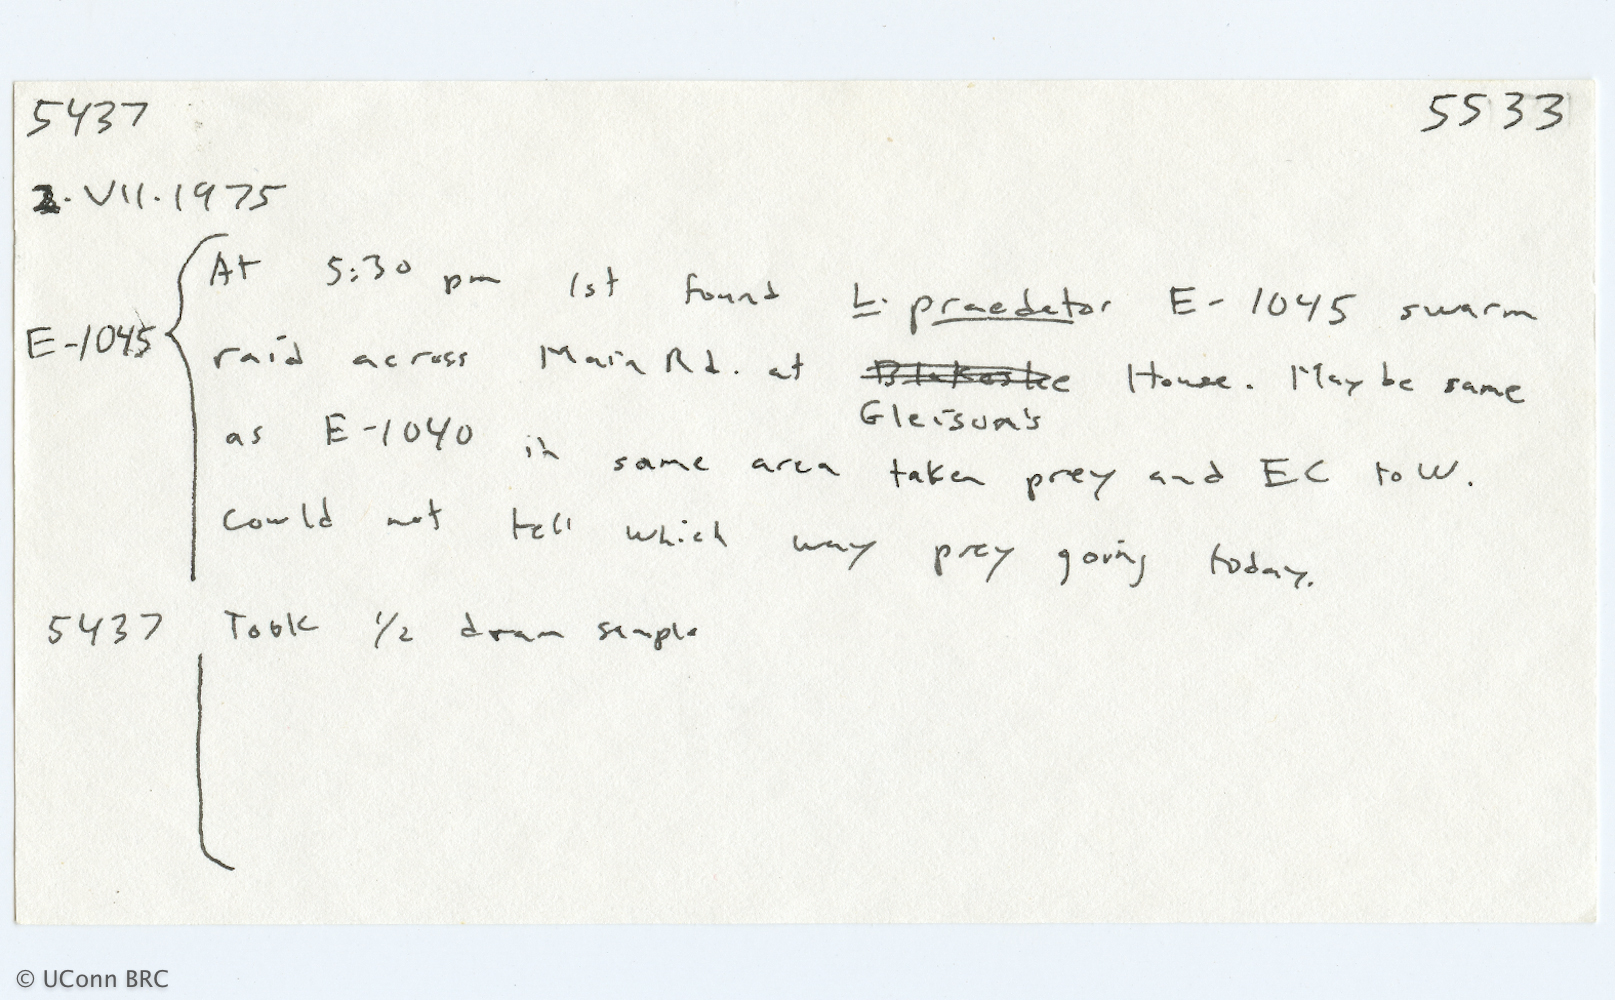 5437 5533
2.VII.1975
At 5:30 pm 1st found L. praedator E-1045 swarm
E-1045 raid across Main Rd. at House. May be same
Gleison's
as E-1040 in same area taken prey and EC to W.
Could not tell which way prey going today.
5437 Took 1/2 dram sample
© UConn BRC